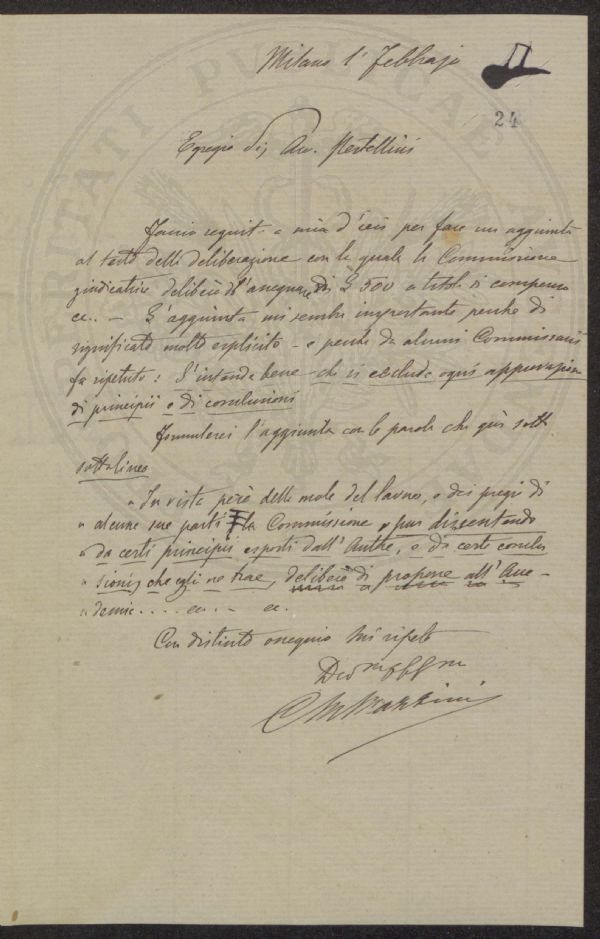 Milano 1° Febbrajo
24
Egregio Sig. Avv.
Faccio seguito a mia d'ieri per fare un aggiunta
al testo della deliberazione con la quale la Commissione
giudicatrice deliberò d'assegnare £ 500 a titolo di compenso
ec.. — L'aggiunta mi sembra importante perchè di
significato molto esplicito - e perchè da alcuni Commissarii
fu ripetuto: S'intenda bene che si esclude ogni approvazione
di principii e di conclusioni
Formulerei l'aggiunta con le parole che qui sotto
sottolineo
"In vista però della mole del lavoro, e dei pregi di
" alcune sue parti la Commissione e pur dissentendo
" da certi principii esposti dall'Autore, e da certe conclu
" sioni, che egli ne trae, deliberò di proporre all'Acca-
" demia.... ec.. - ec.
Con distinto ossequio mi ripeto